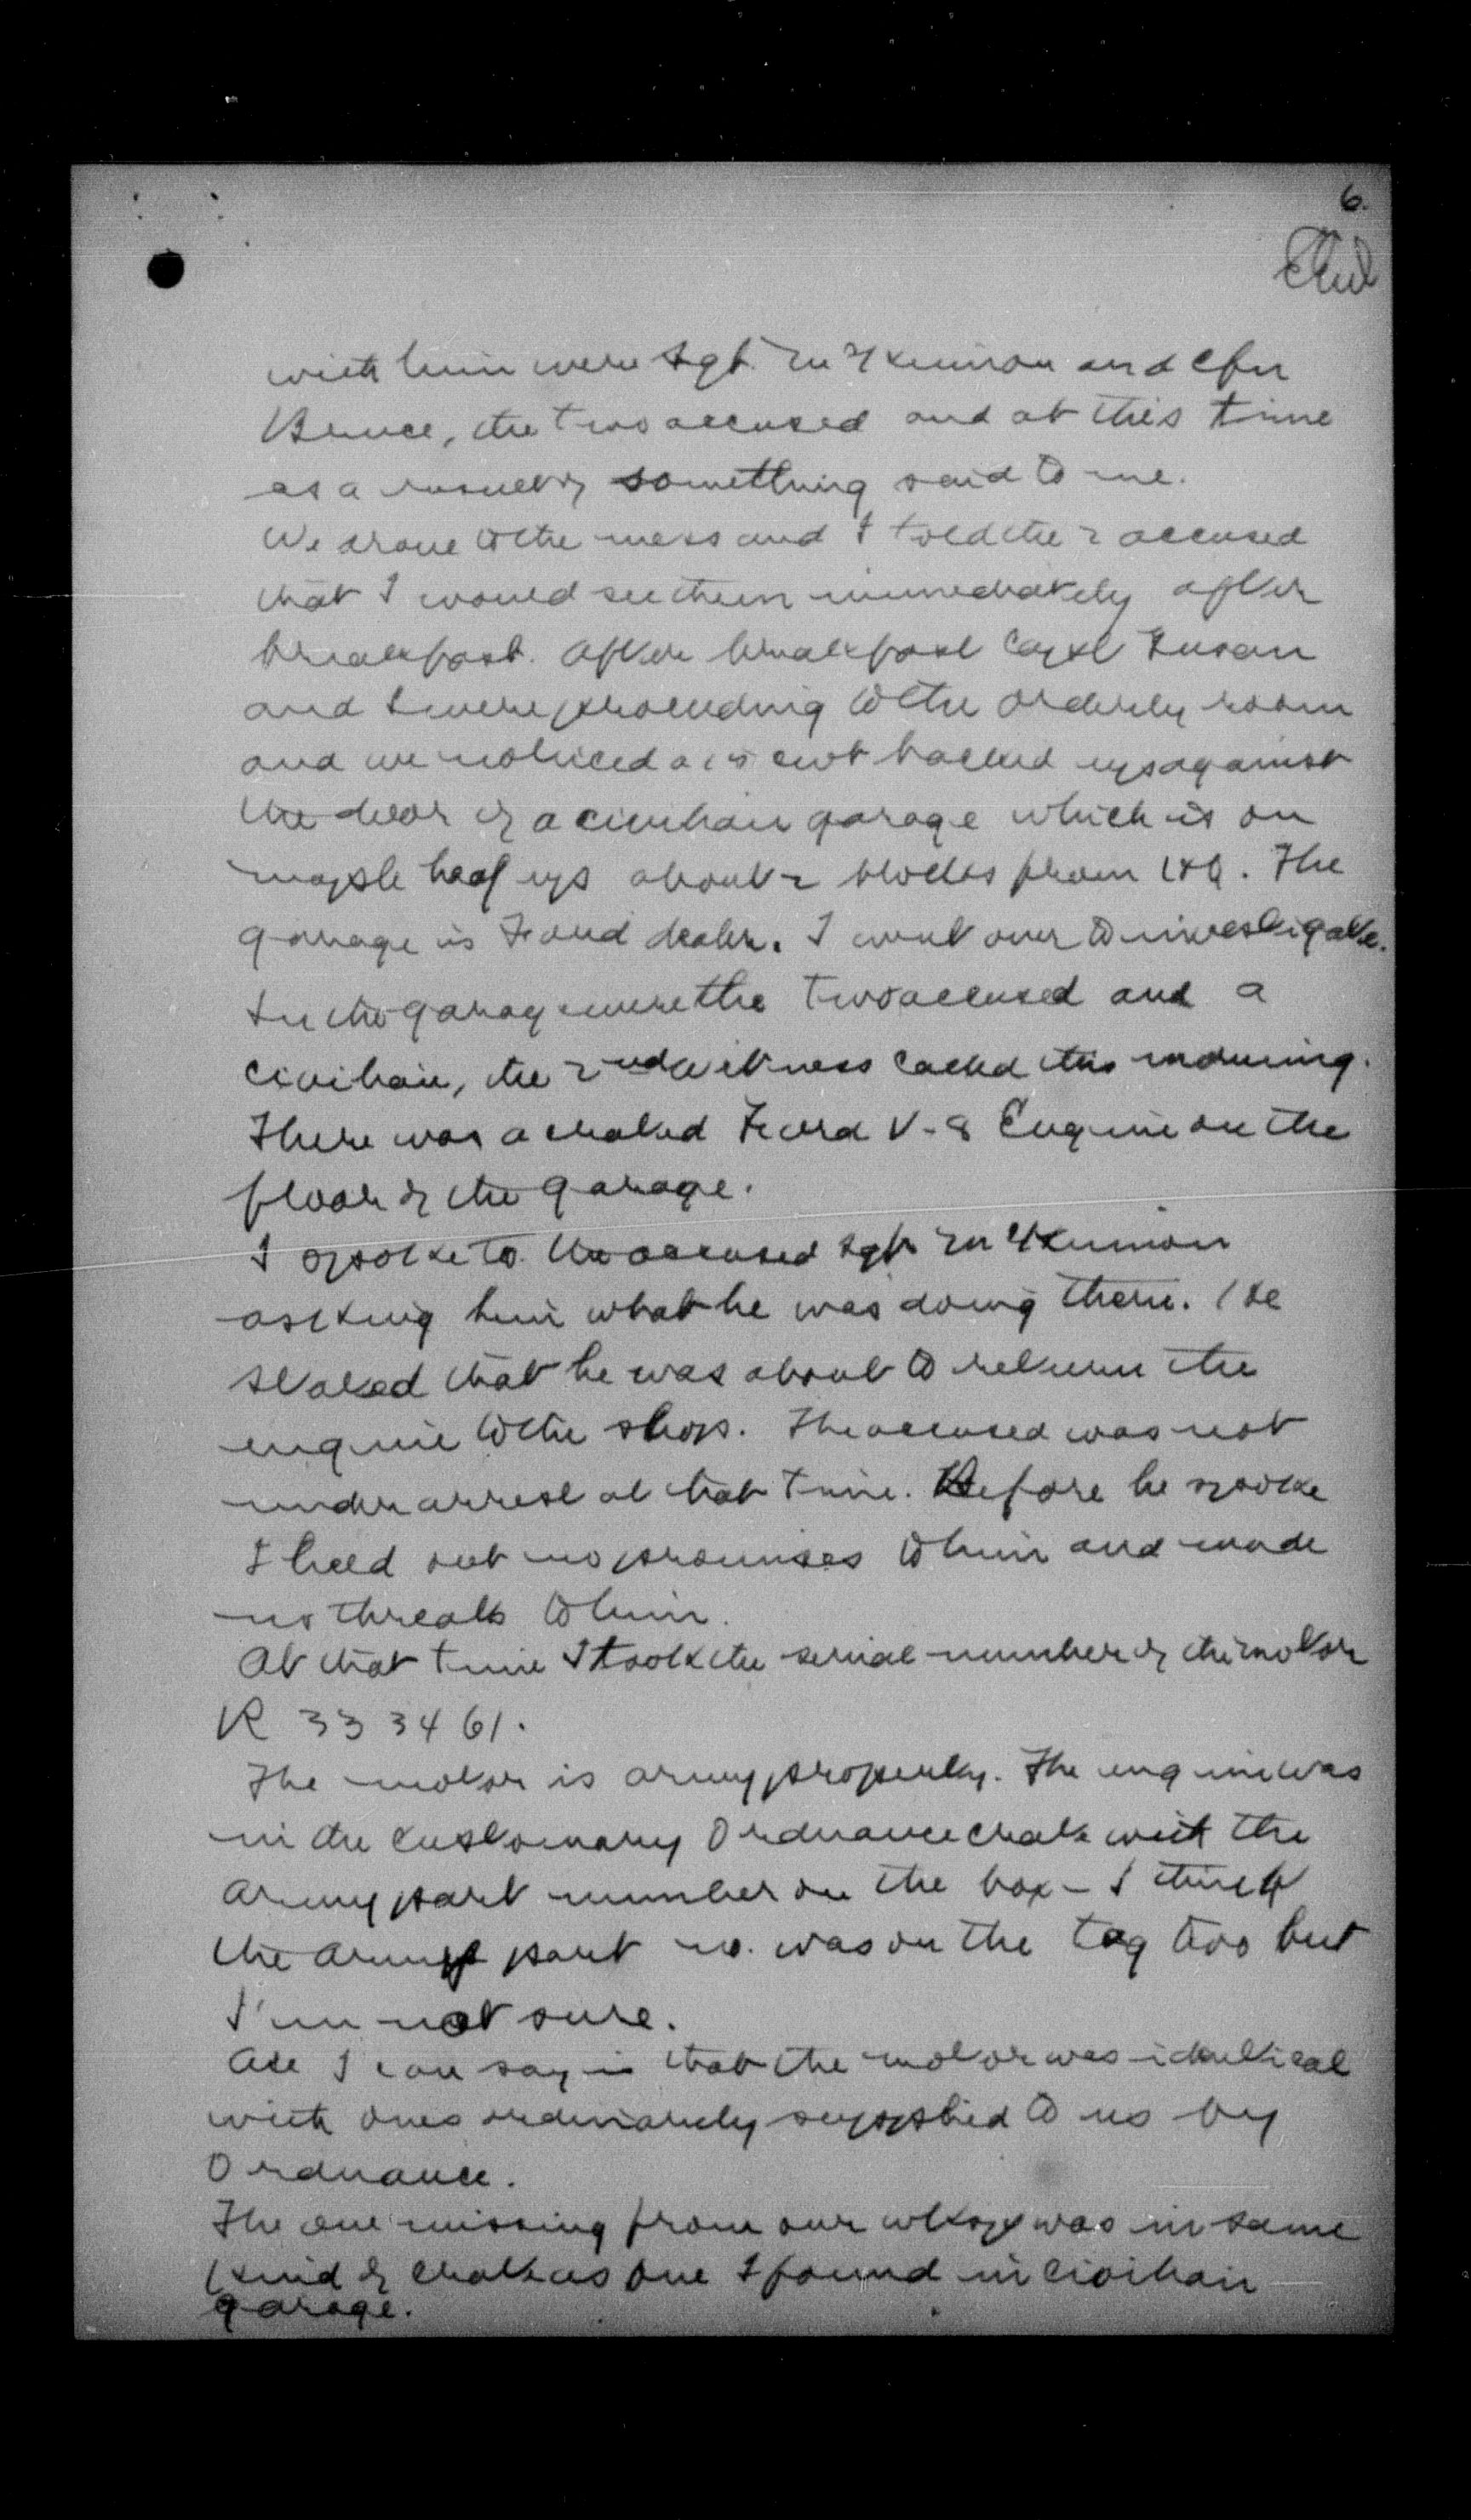 6.
with him were Sgt. McKinnon and Cfn
Bruce, the two accused and at this time
as a result of something said to me.
We drove to the mess and I told the 2 accused
that I would see them immediately after
breakfast. After breakfast Capt Susan
and I were proceeding to the orderly room
and we noticed a 15 cwt backed up against
the door of a civilian garage which is on
maple leaf up about 2 blocks from HQ. The
garage is Ford dealer. I went over to investigate.
In the garage were the two accused and a
civilian, the 2nd witness called this morning.
There was a crated Ford V-8 Engine on the
floor of the garage.
I spoke to the accused Sgt McKinnon
asking him what he was doing there. He
stated that he was about to return the
engine to the shop. The accused was not
under arrest at that time. Before he spoke
I held out no promises to him and made
no threats to him.
At that time I took the serial number of the motor
R 333461.
The motor is army property. The engine was
in the customary Ordnance crate with the
army part number on the box - I think
the army part no. was on the tag too but
I'm not sure.
All I can say is that the motor was identical
with ones ordinarily supplied to us by
Ordnance.
The one missing from our wksp was in same
kind of crate as one I found in civilian
garage.